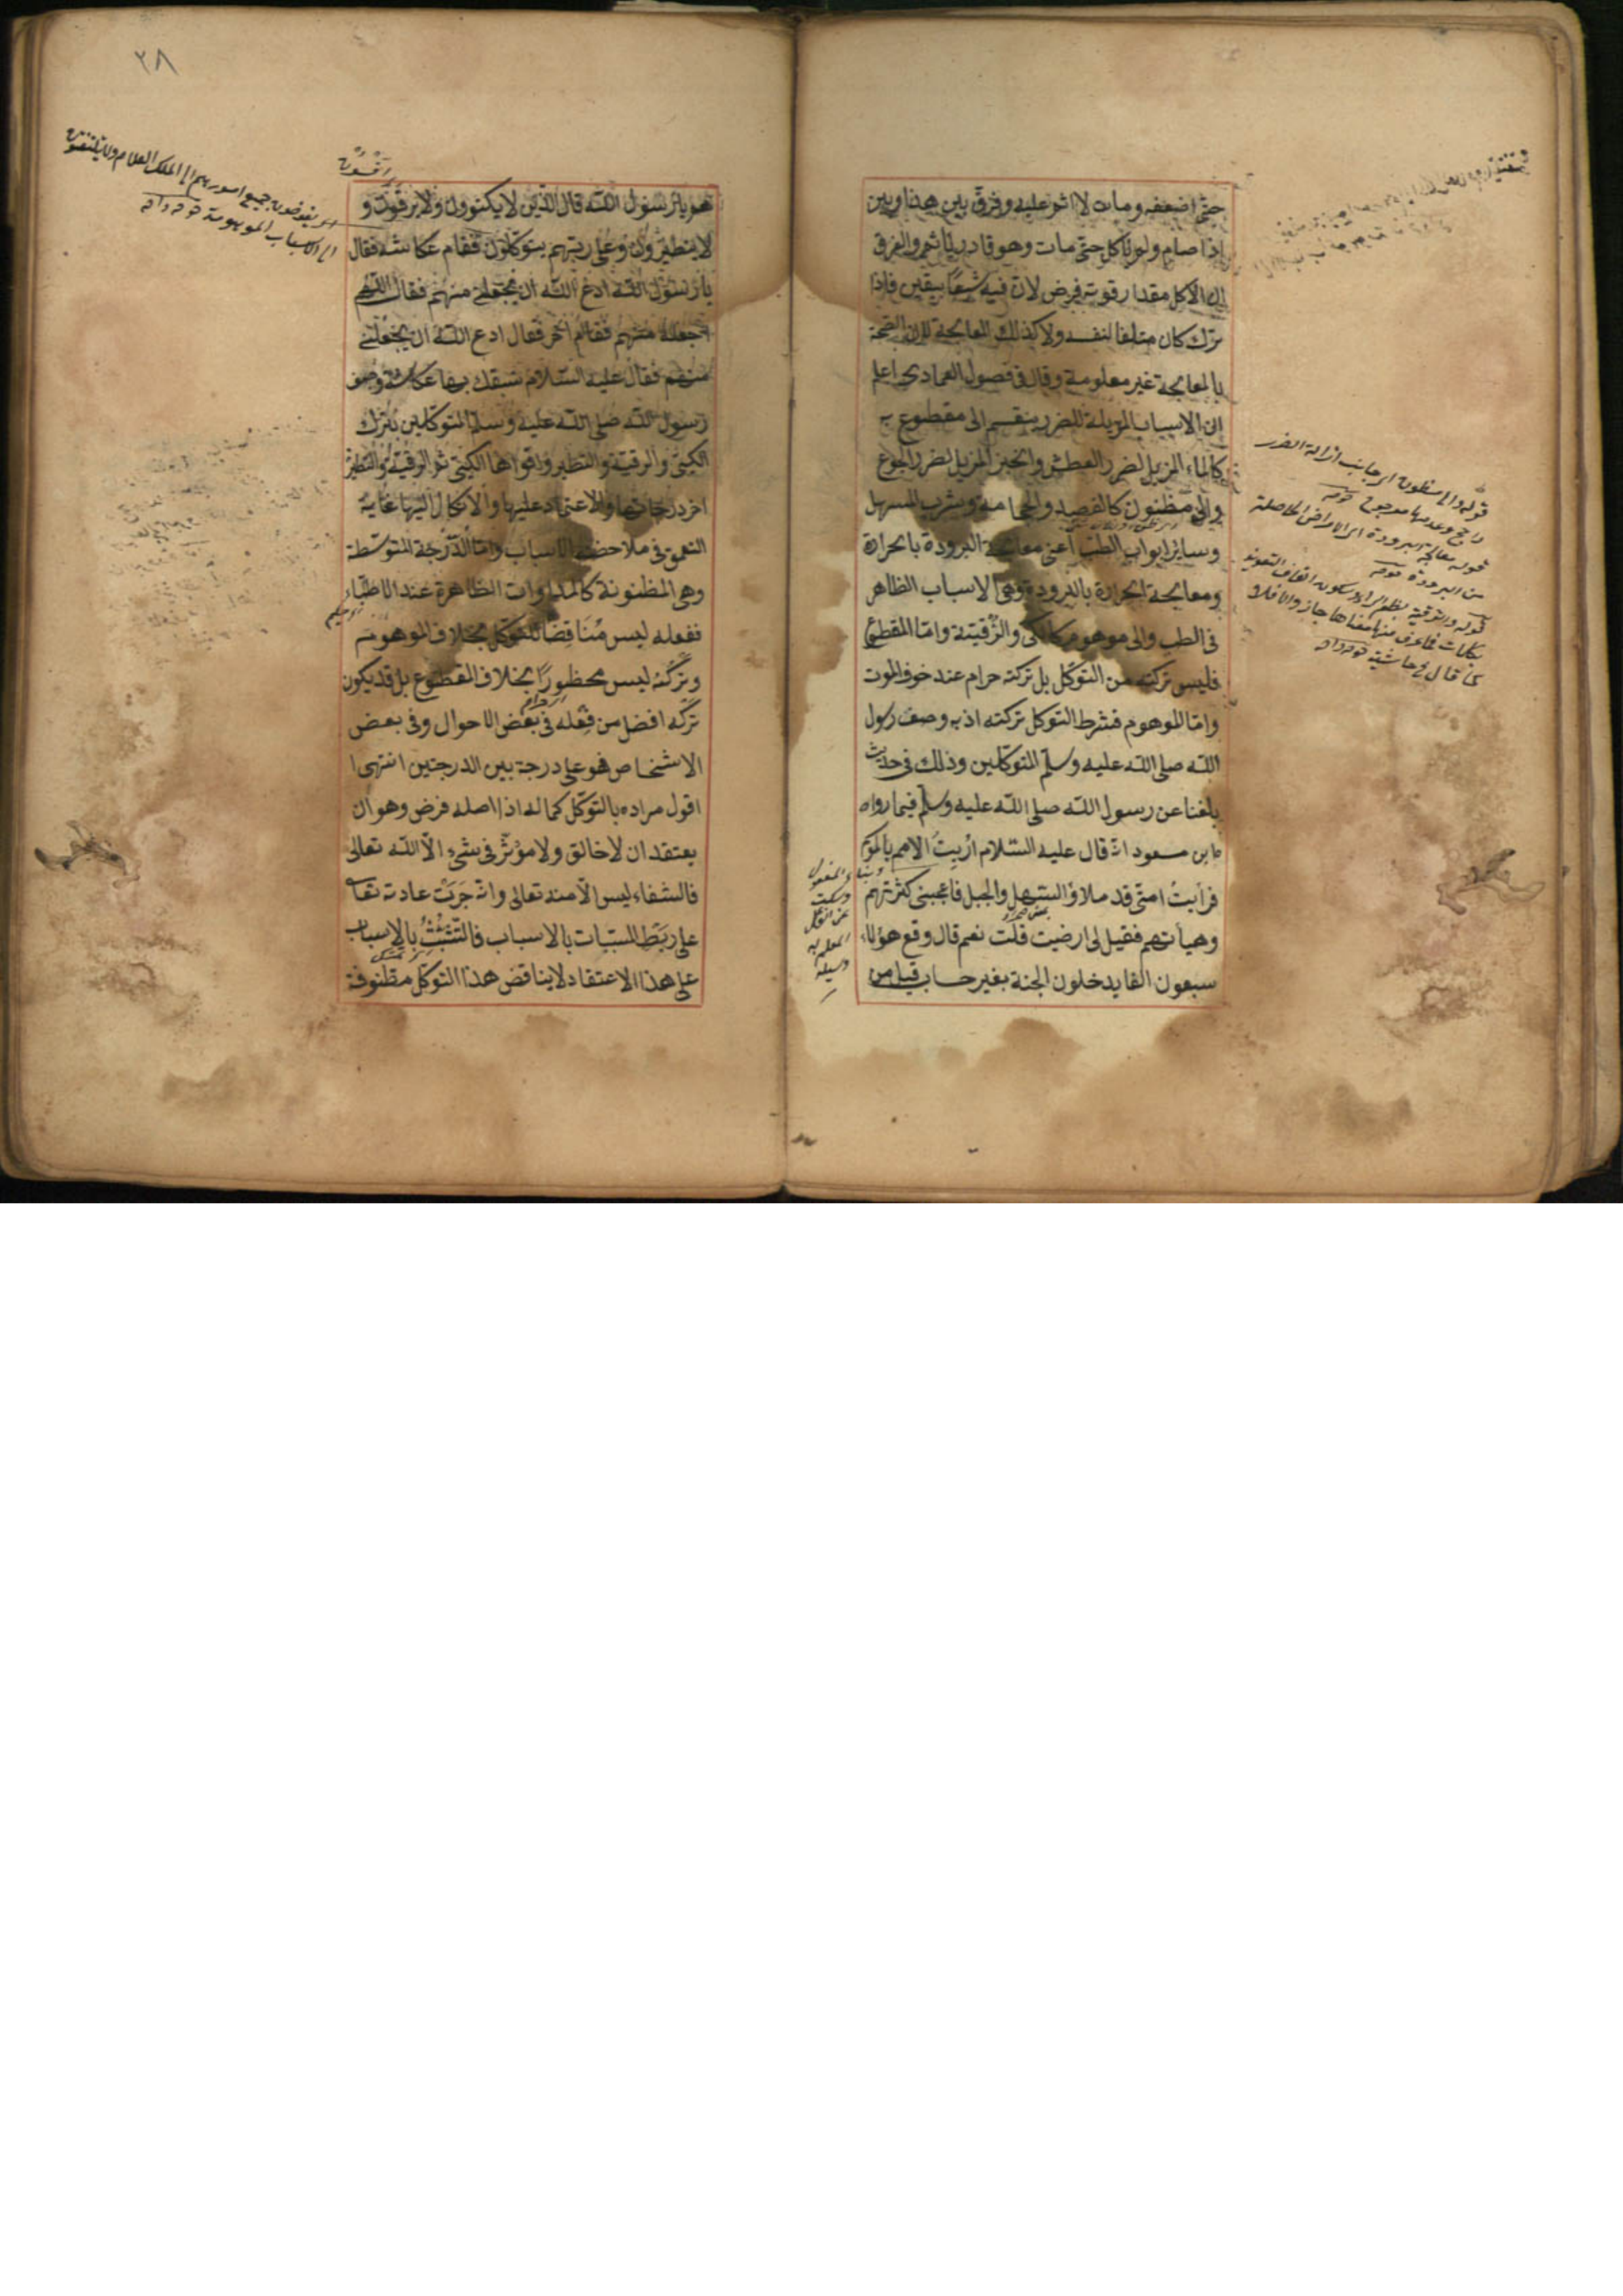 حتى اضعفه ومات لا اثم عليه وفرق بين هذا وبين
اذا صام ولم ياكل حتى مات وهو قادر ياثم والفرق
ان الاكل مقدار قوته فرض لان فيه شبعا بيقين فاذا
ترك كان متلفا لنفسه ولا كذلك المعالجة لان الصحة
بالمعالجة غير معلومة وقال فى فصول العمادى اعلم
ان الاسباب المزيلة للضرر ينقسم الى مقطوع به
كالماء المزيل لضرر العطش والخبز المزيل لضرر الجوع
والى مظنون كالفصد والحجامة وشرب المسهل
وسائر ابواب الطب اعنى معالجة البرودة بالحرارة
ومعالجة الحرارة بالبرودة وهى الاسباب الظاهر
فى الطب والى موهوم كالكى والرُّقية وامّا المقطوع
فليس تركه من التوكّل بل تركه حرام عند خوف الموت
وامّا الموهوم فشرط التوكل تركه اذ به وصف رسول
اللّه صلى اللّه عليه وسلّم المتوكلين وذلك فى حديث
بلغنا عن رسول اللّه صلى اللّه عليه وسلّم فيما رواه
ابن مسعود انّه قال عليه السّلام اُريتُ الامم بالموسم
فرأيتُ امتى قد ملاؤا السّهل والجبل فاعجبنى كثرتهم
وهيأتهم فقيل لى ارضيت قلت نعم قال ومع هؤلاء
سبعون الفا يدخلون الجنة بغير حساب قيل من
قوله والى مظنون اى جانب ازالة الضرر
راجح وعدمها مرجوح
قوله معالجة البرودة اى الامراض الحاصلة
من البرودة
قوله والرقية بضم الراء وسكون القاف التعويذ
بكلمات فما عرف منها معناها جاز والا فلا
كما قال فى حاشية
٢٨
هم يا رسول اللّه قال الّذين لا يكتوون ولا يرقون و
لا يتطيّرون وعلى ربّهم يتوكّلون فقام عكاشه فقال
يا رسول اللّه ادع اللّه ان يجعلنى منهم فقال اللّهم
اجعله منهم فقام آخر فقال ادع اللّه ان يجعلنى
منهم فقال عليه السّلام سبقك بها عكاشة وصف
رسول اللّه صلى اللّه عليه وسلم المتوكلين بترك
الكىّ والرقية والتطير واقواها الكىّ ثم الرقية والتطيّر
اخر درجاتها والاعتماد عليها والاتكال اليها غاية
التعمق فى ملاحضة الاسباب وامّا الدّرجة المتوسّطة
وهى المظنونة كالمداوات الظاهرة عند الاطبّاء
ففعله ليس مُناقِضًا للتوكّل بخلاف الموهوم
وتركُه ليس محظورًا بخلاف المقطوع بل قد يكون
تركه افضل من فعله فى بعض الاحوال وفى بعض
الاشخاص فهو على درجة بين الدرجتين انتهى
اقول مراده بالتوكّل كماله اذ اصله فرض وهو ان
يعتقد ان لا خالق ولا مؤثّر فى شىء الّا اللّه تعالى
فالشفاء ليس الّا منه تعالى وانّه جَرَتْ عادته تعا
على ربطِ المسبّبات بالاسباب فالتّشبّثُ بالاسباب
على هذا الاعتقاد لا يناقض هذا التوكل مظنونة
اى يفوضون جميع امورهم الى الملك العلام ولا يلتفتون
الى الاسباب الموهومة